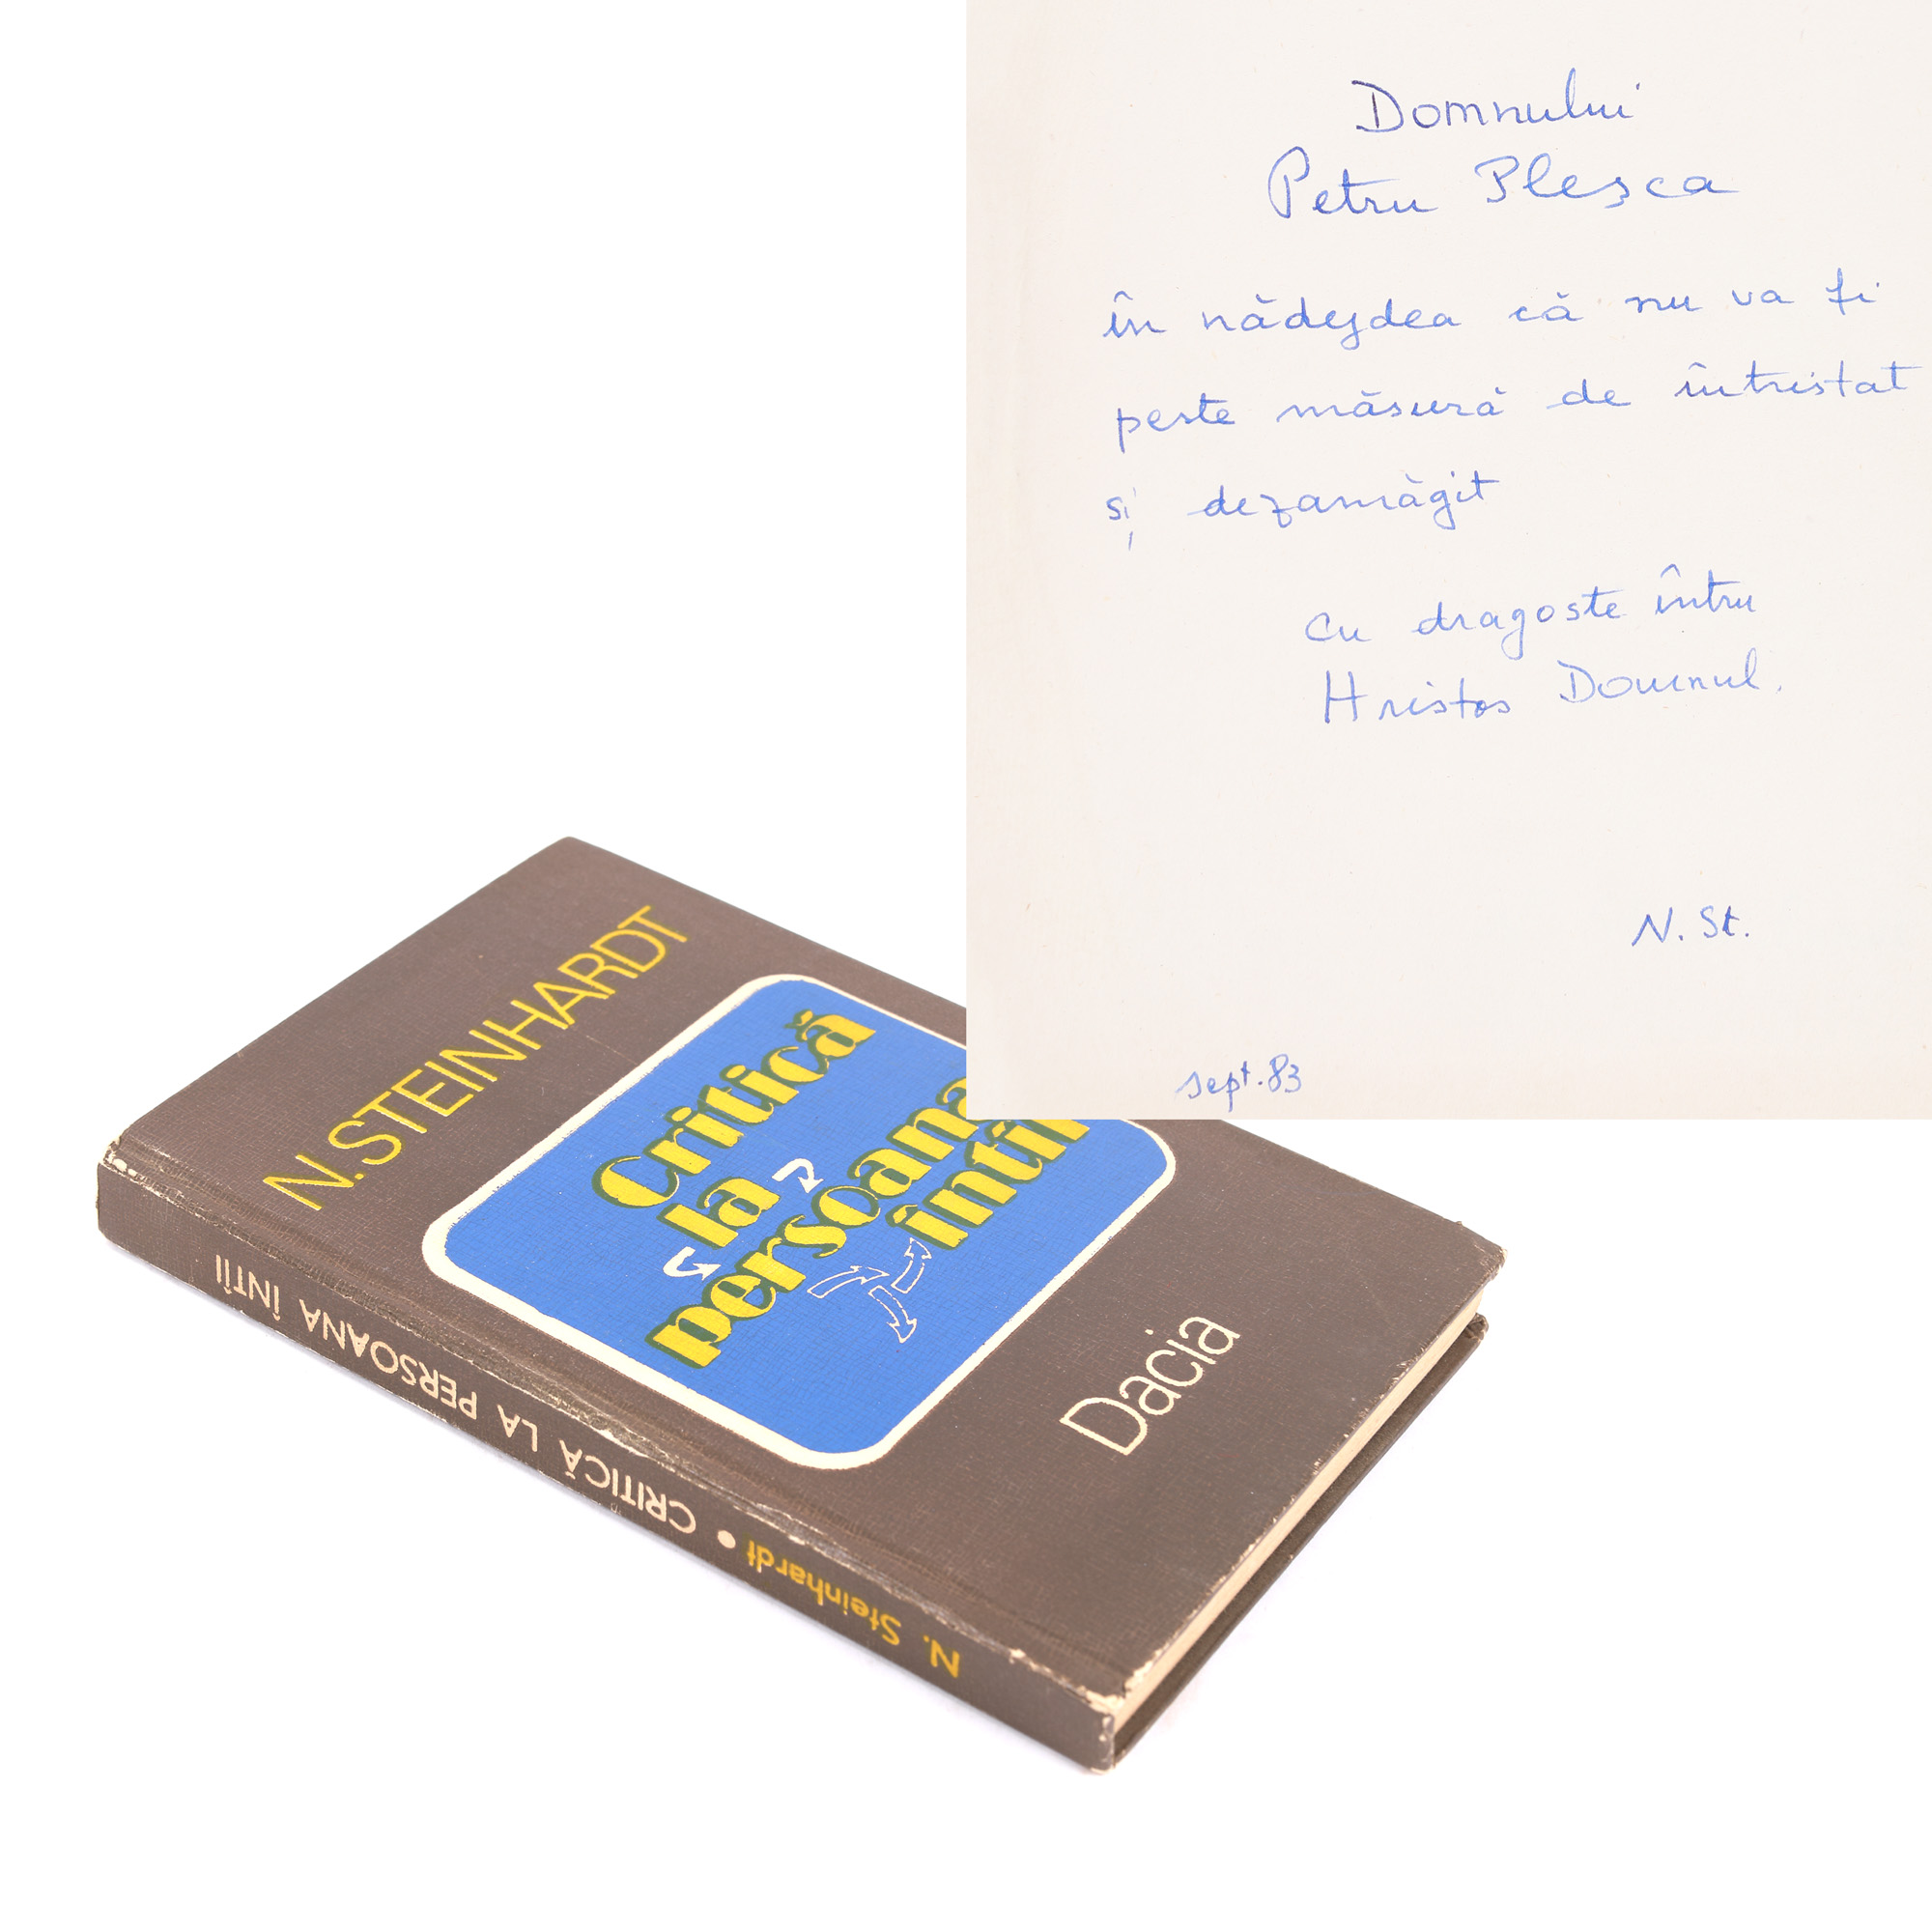 Domnului
Petru Pleşca
în nădejdea că nu va fi
peste măsură de întristat
și dezamăgit
cu dragoste întru
Hristos Domnul.
N. St.
sept. 83
N. STEINHARDT
Critică
la
persoana
întîi
Dacia
N. Steinhardt • CRITICĂ LA PERSOANA ÎNTÎI